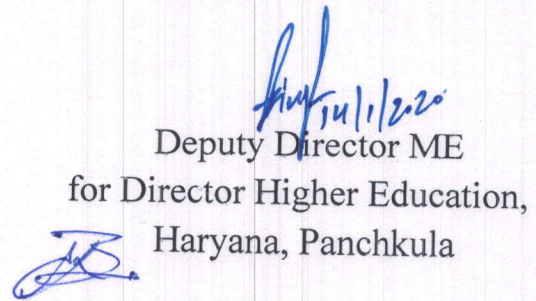 14/1/2020
Deputy Director ME
for Director Higher Education,
Haryana, Panchkula